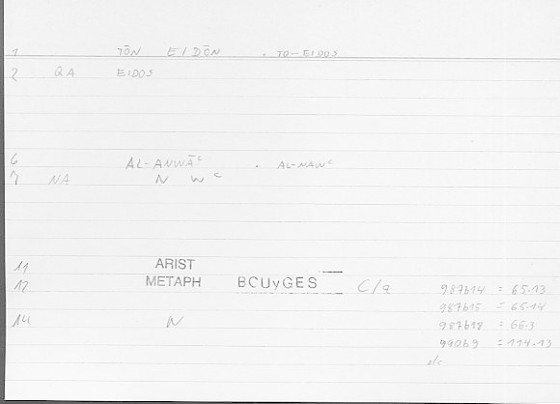 1 TŌN EIDŌN . TO-EIDOS
2 QA EIDOS
6 AL-ANWĀʿ . AL-NAWʿ
7 NA N W ʿ
11 ARIST
12 METAPH BOUyGES C/a 987b14 = 65.13
987b15 = 65.14
14 N 987b18 = 66.3
990b9 = 114.13
etc